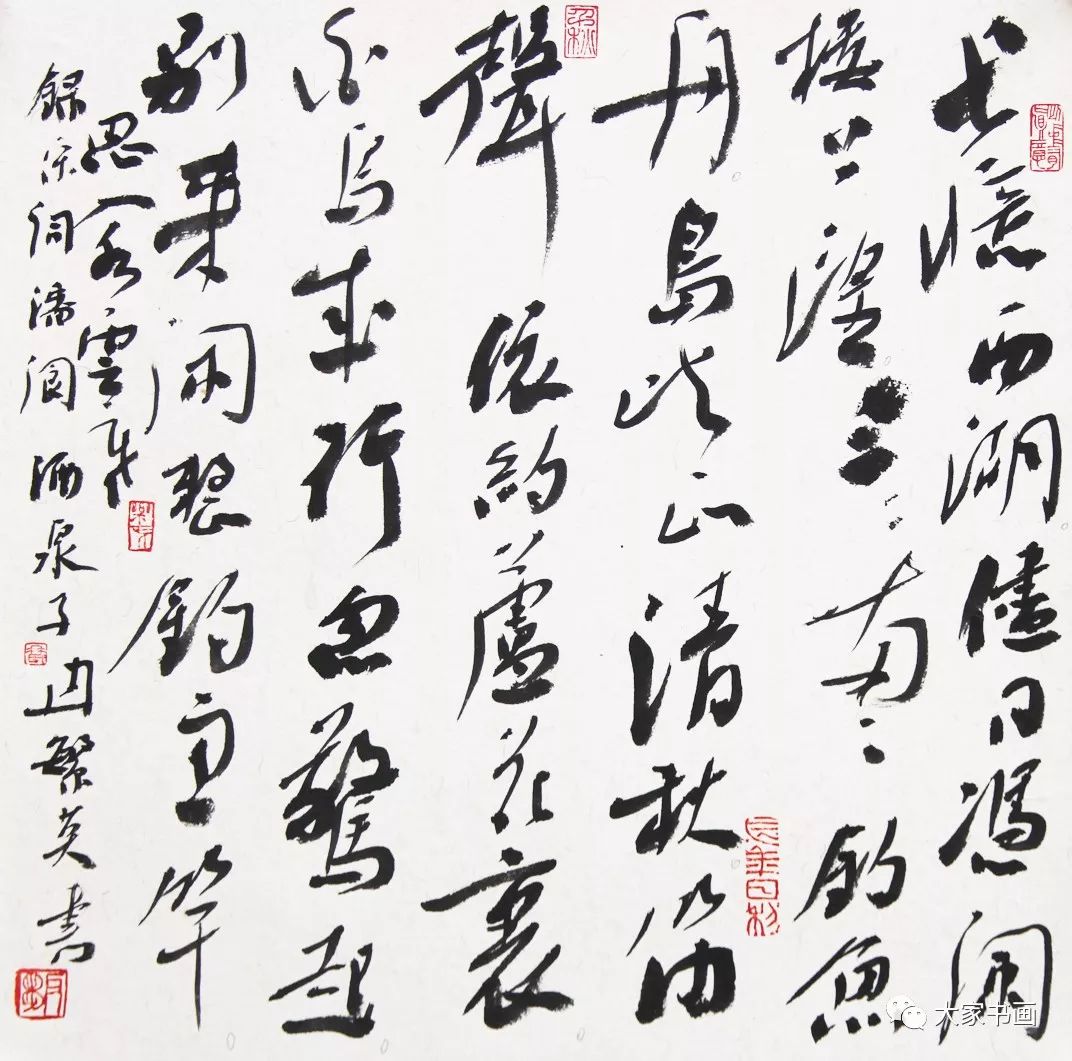 长憶西湖儘日憑闌
樓上望三三两两釣魚
舟島屿正清秋笛
聲依約蘆花裏
白鳥成行忽驚起
别来闲整釣魚竿
思入水雲寒
錄宋詞潘阆酒泉子繁英书
大家书画